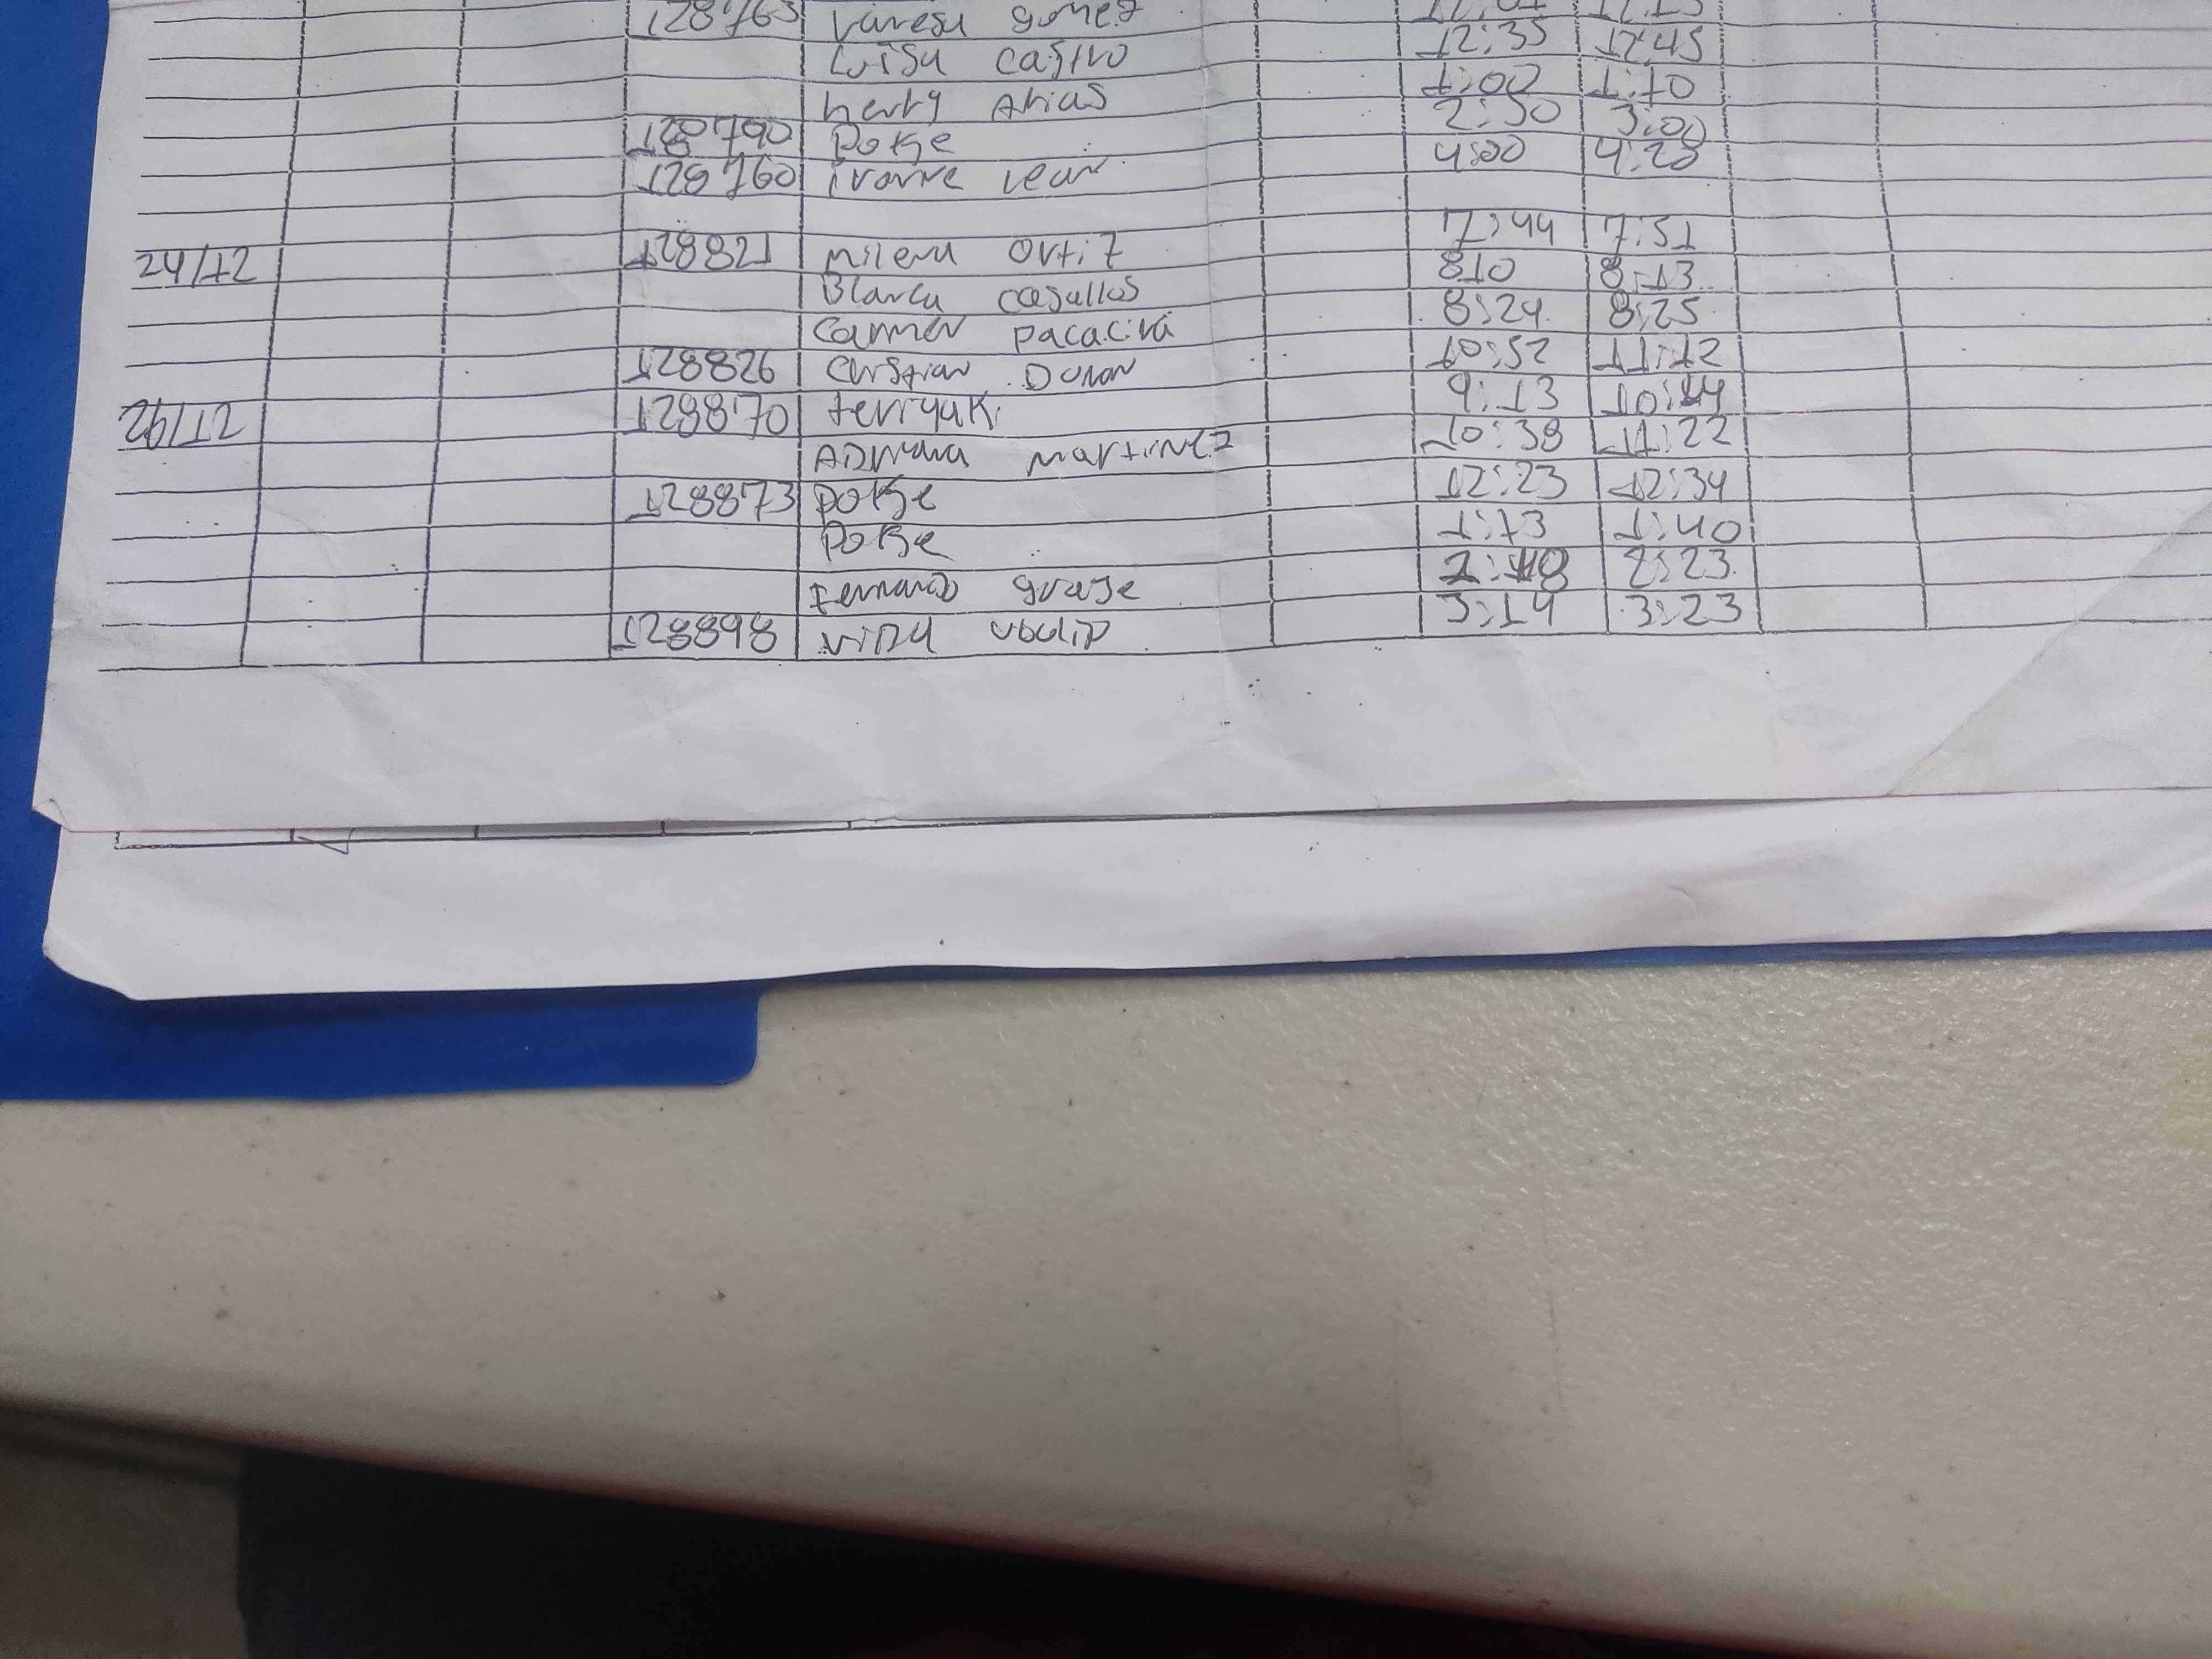 128763 vanesa gomez
Luisa castro 12:35 12:45
henry Arias 1:00 1:10
128790 Dorge 2:50 3:00
128760 ivonne lean 4:00 4:20
24/12 128821 milena Ortiz 7:44 7:51
Blanca casallas 8:10 8:13
carmen pacaciva 8:24 8:25
128826 Cristian Duran 10:52 11:12
26/12 128870 terryaki 9:13 10:44
ADriana martinez 10:38 11:22
128873 Dorge 12:23 12:34
Dorge 1:13 1:40
Fernando 2:23
128898 3:14 3:23